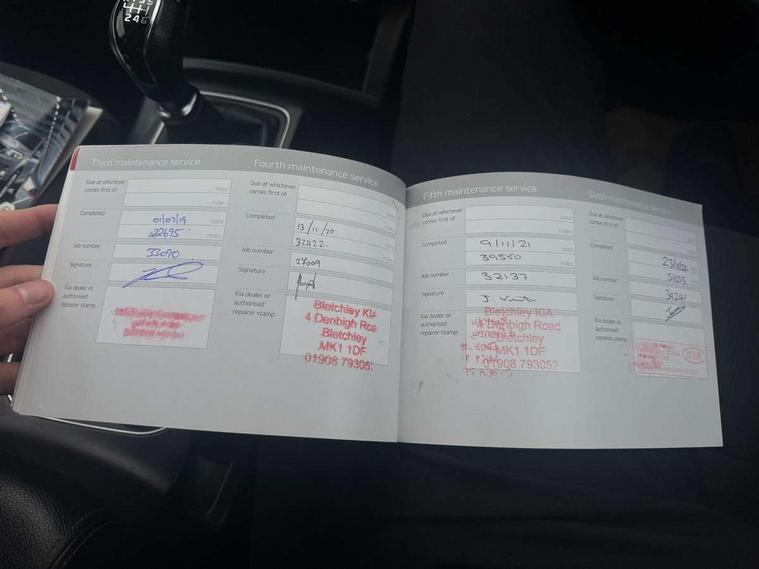 2 4 6
Third maintenance service
Due at whichever
comes first of
date
miles
Completed
01/07/19
date
22695
miles
Job number
33090
Signature
Kia dealer or
authorised
repairer stamp
Fourth maintenance service
Due at whichever
comes first of
Completed
13/11/20
32422
Job number
27009
Signature
Kia dealer or
authorised
repairer stamp
Bletchley KIA
4 Denbigh Roa
Bletchley
MK1 1DF
01908 79305
Fifth maintenance service
Due at whichever
comes first of
date
miles
Completed
9/11/21
date
39550
miles
Job number
32137
Signature
Kia dealer or
authorised
repairer stamp
Bletchley KIA
4 Denbigh Road
Bletchley
MK1 1DF
01908 79305
Sixth maintenance service
Due at whichever
comes first of
date
miles
Completed
Job number
Signature
Kia dealer or
authorised
repairer stamp
KIA